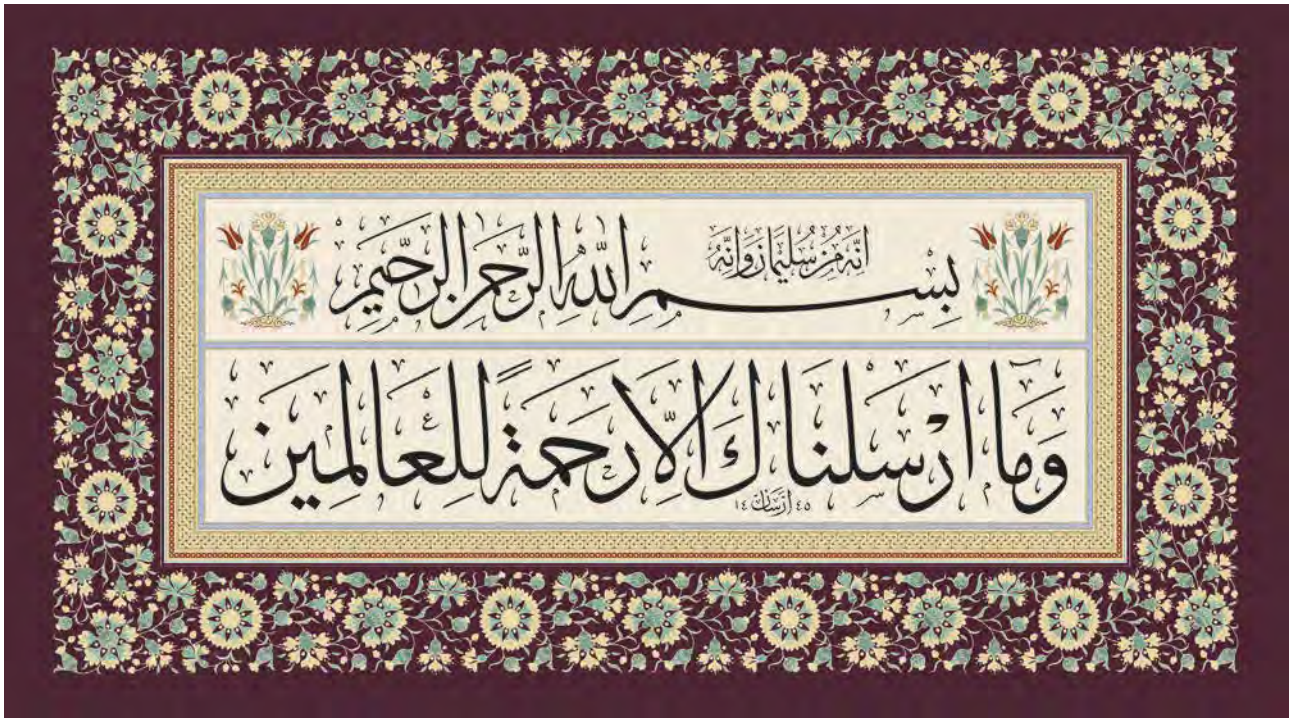 انه من سليمان وانه
بسم الله الرحمن الرحيم
وما ارسلناك الا رحمة للعالمين
١٤ ٤٥